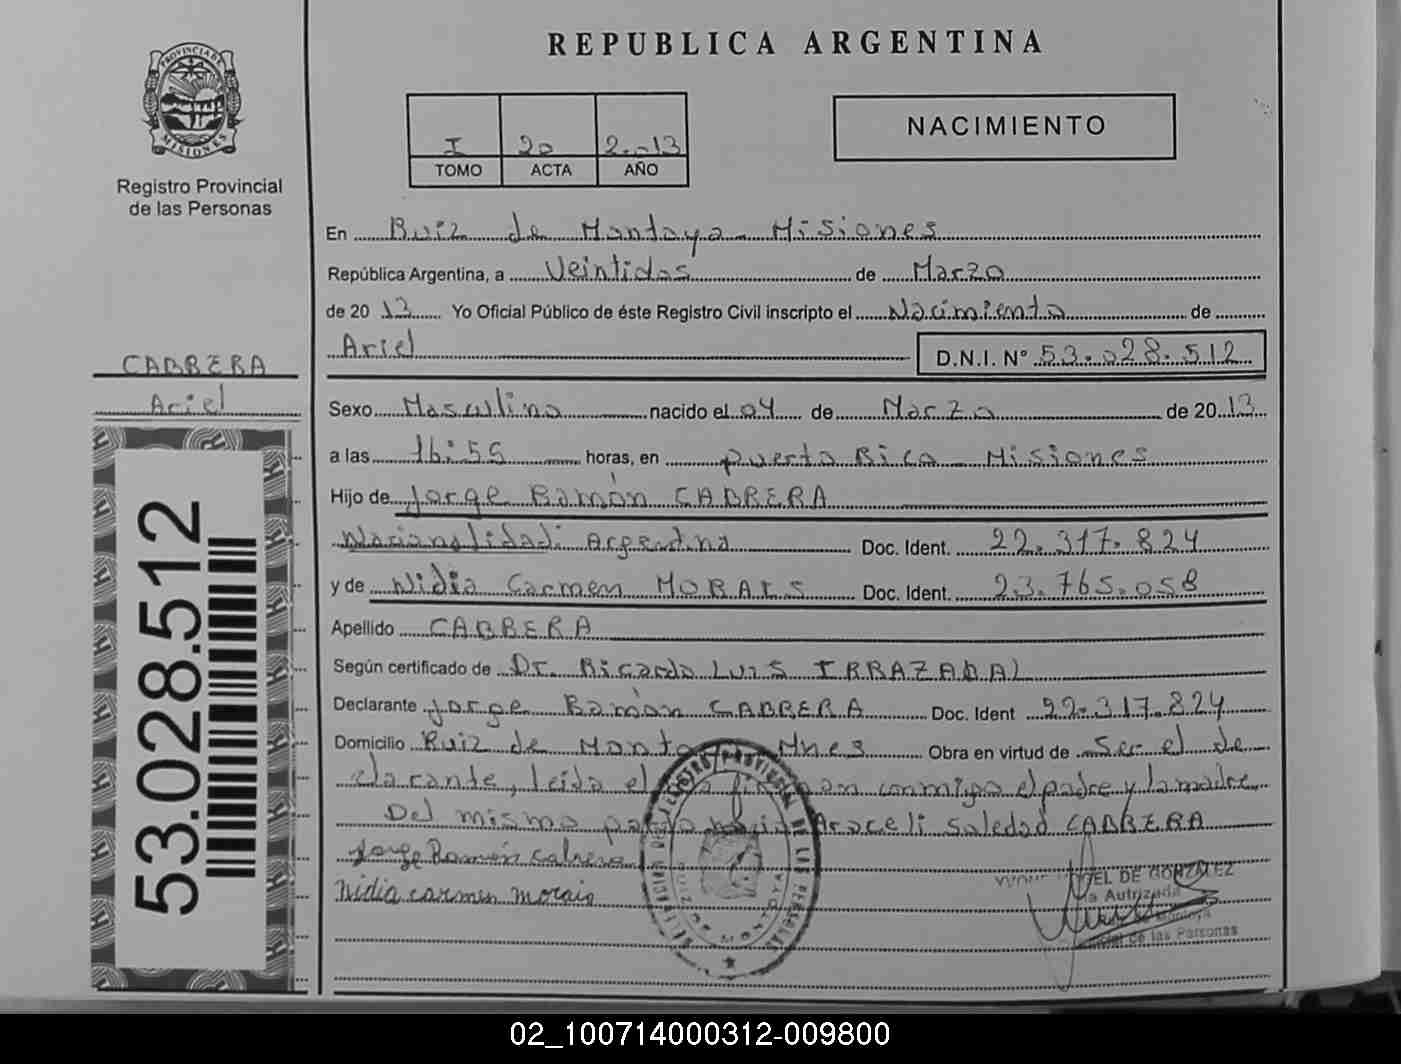 REPUBLICA ARGENTINA
PROVINCIA DE MISIONES
Registro Provincial
de las Personas
I 20 2013
TOMO ACTA AÑO
NACIMIENTO
En Ruiz de Montoya - Misiones
República Argentina, a Veintidos de Marzo
de 2013 Yo Oficial Público de éste Registro Civil inscripto el Nacimiento de
Ariel D.N.I. N° 53.028.512
CABRERA
Ariel
53.028.512
Sexo Masculino nacido el 04 de Marzo de 2013
a las 16:55 horas, en puerto Rico - Misiones
Hijo de Jorge Ramón CABRERA
Nacionalidad: Argentina Doc. Ident. 22.317.824
y de Nidia Carmen MORAIS Doc. Ident. 23.765.058
Apellido CABRERA
Según certificado de Dr. Ricardo Luis IRRAZABAL
Declarante Jorge Ramón CABRERA Doc. Ident 22.317.824
Domicilio Ruiz de Montoya Mnes Obra en virtud de Ser el de
clarante, leída el firman conmigo el padre y la madre
Del mismo parto nació Araceli Soledad CABRERA
Jorge Ramón Cabrera
Nidia carmen morais
DE GONZALEZ
Autorizada
Montoya
de las Personas
02_100714000312-009800